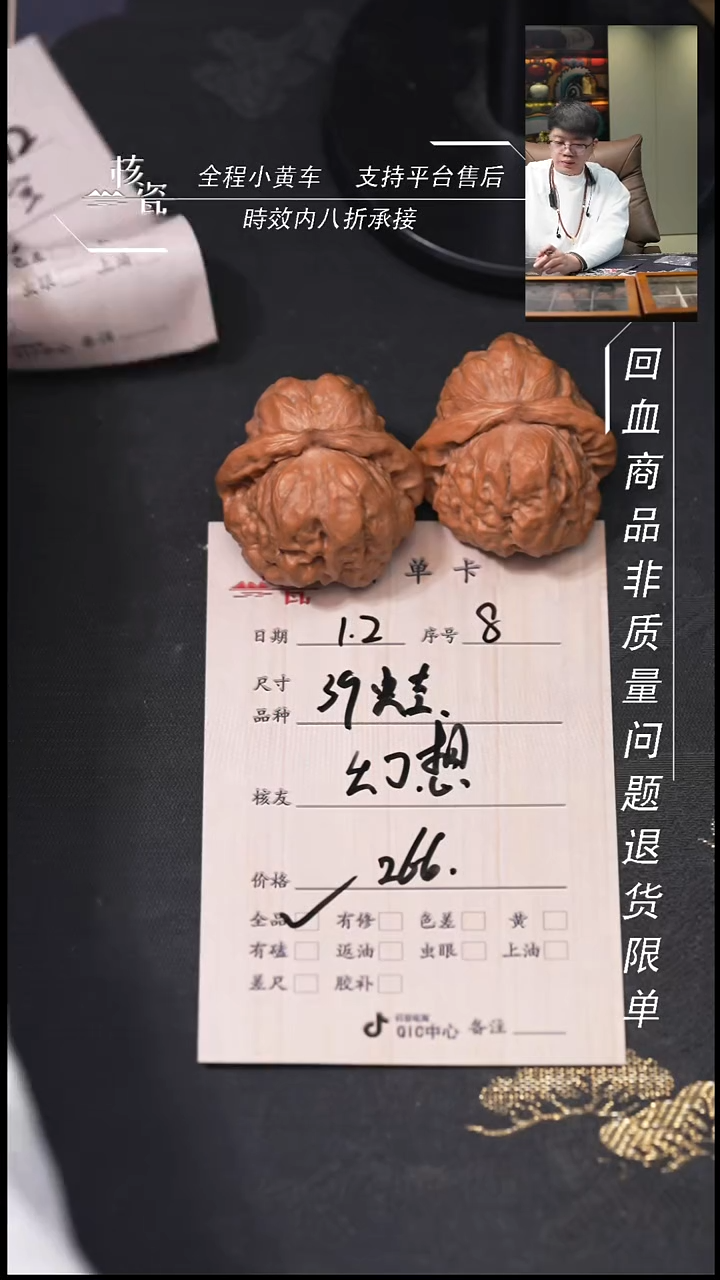 核瓷
全程小黄车 支持平台售后
時效内八折承接
回血商品非质量问题退货限单
单卡
日期 1.2 序号 8
尺寸
品种 39
核友 幻想
价格 266.
全品 有修 色差 黄
有磕 返油 虫眼 上油
差尺 胶补
QIC中心 备注